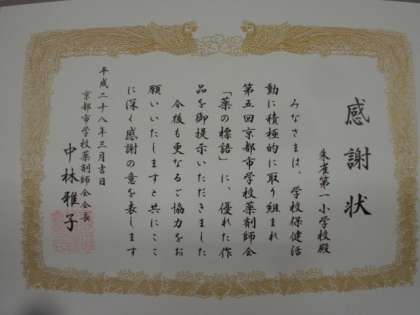 感謝状
朱雀第一小学校殿
みなさまは、学校保健活
動に積極的に取り組まれ
第五回京都市学校薬剤師会
「薬の標語」に、優れた作
品を御提示いただきました
今後も更なるご協力をお
願いいたしますと共にここ
に深く感謝の意を表します
平成二十八年三月吉日
京都市学校薬剤師会会長
中林雅子